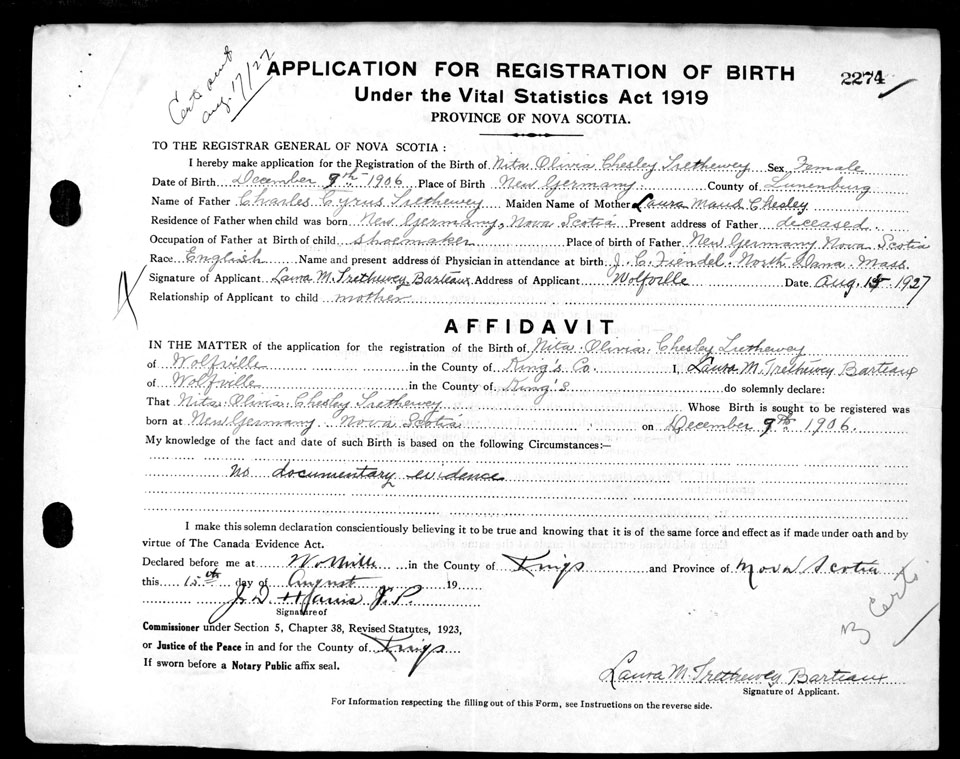 Certs sent
Aug. 17/27
APPLICATION FOR REGISTRATION OF BIRTH
2274
Under the Vital Statistics Act 1919
PROVINCE OF NOVA SCOTIA.
TO THE REGISTRAR GENERAL OF NOVA SCOTIA :
I hereby make application for the Registration of the Birth of Nita Olivia Chesley Trethewey Sex Female
Date of Birth December 9th 1906 Place of Birth New Germany County of Lunenburg
Name of Father Charles Cyrus Trethewey Maiden Name of Mother Laura Maud Chesley
Residence of Father when child was born New Germany, Nova Scotia Present address of Father deceased.
Occupation of Father at Birth of child shoemaker Place of birth of Father New Germany Nova Scotia
Race English Name and present address of Physician in attendance at birth J. C. North Mass.
Signature of Applicant Laura M. Trethewey Barteaux Address of Applicant Wolfville Date Aug. 15 1927
Relationship of Applicant to child mother
AFFIDAVIT
IN THE MATTER of the application for the registration of the Birth of Nita Olivia Chesley Trethewey
of Wolfville in the County of King's Co. I, Laura M. Trethewey Barteaux
of Wolfville in the County of King's do solemnly declare:
That Nita Olivia Chesley Trethewey Whose Birth is sought to be registered was
born at New Germany Nova Scotia on December 9th 1906.
My knowledge of the fact and date of such Birth is based on the following Circumstances:—
no documentary evidence
I make this solemn declaration conscientiously believing it to be true and knowing that it is of the same force and effect as if made under oath and by
virtue of The Canada Evidence Act.
Declared before me at Wolfville in the County of Kings and Province of Nova Scotia
this 15th day of August 19
J. D. Harris J.P.
Signature of
Commissioner under Section 5, Chapter 38, Revised Statutes, 1923,
3 Certs.
or Justice of the Peace in and for the County of Kings
If sworn before a Notary Public affix seal.
Laura M. Trethewey Barteaux
Signature of Applicant.
For Information respecting the filling out of this Form, see Instructions on the reverse side.